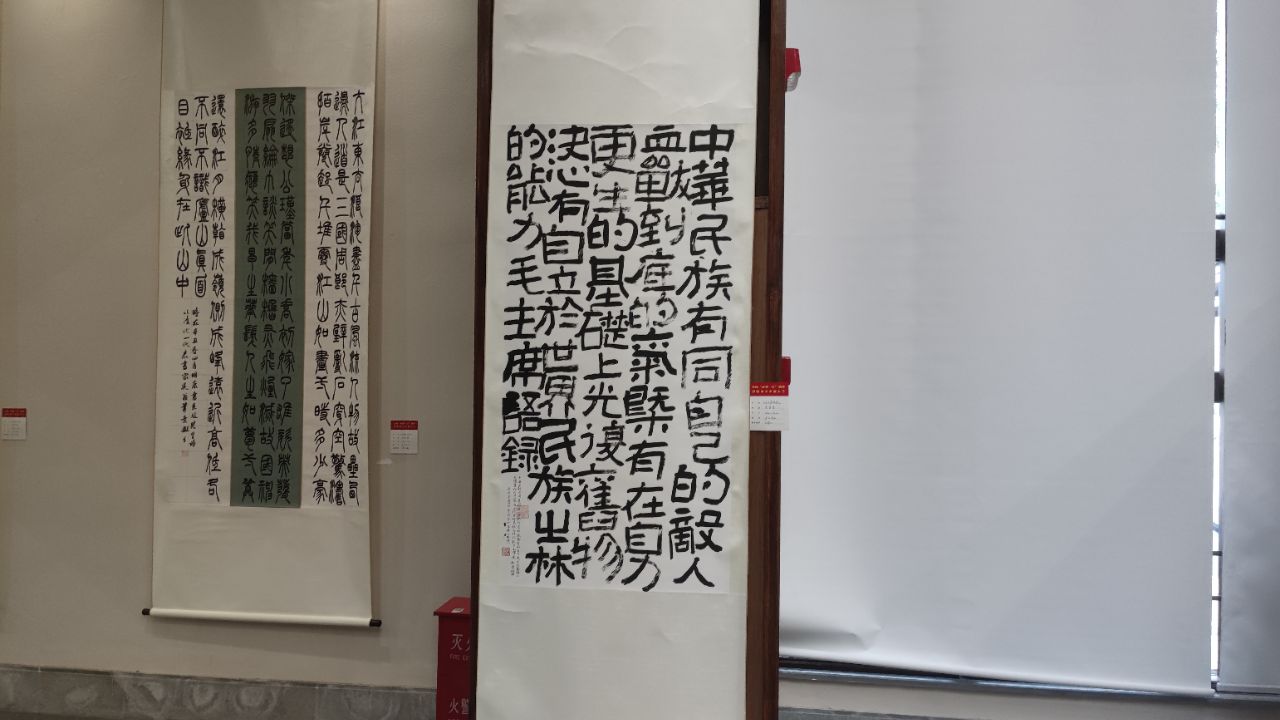 中華民族有同自己的敵人
血戰到底的氣槩有在自力
更生的基礎上光復舊物
決心有自立於世界民族之林
的能力毛主席語録
大江東去浪淘盡千古風流人物故壘西
邊人道是三國周郎赤壁亂石穿空驚濤
陌岸卷起千堆雪江山如畫一時多少豪
傑遥想公瑾當年小喬初嫁了雄姿英發
羽扇綸巾談笑間檣櫓灰飛煙滅故國神
游多情應笑我早生華髮人生如夢一尊
還酹江月橫看成嶺側成峰遠近高低各
不同不識廬山真面
目只緣身在此山中
灭火
火警